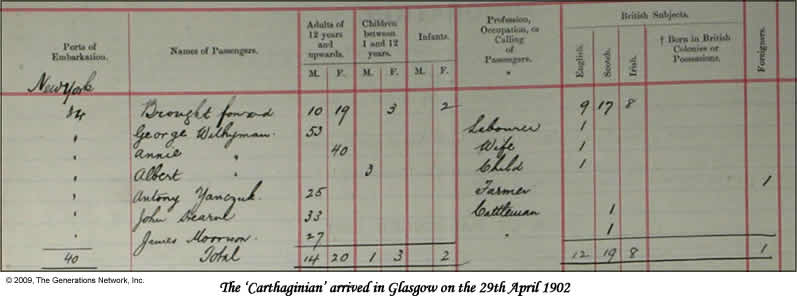 Ports of Embarkation. Names of Passengers. Adults of 12 years and upwards. Children between 1 and 12 years. Infants. Profession, Occupation, or Calling of Passengers. British Subjects. Foreigners.
M. F. M. F. M. F. English. Scotch. Irish. † Born in British Colonies or Possessions.
New York
Brought forward 10 19 3 2 9 17 8
" George Withyman. 53 Labourer 1
" Annie " 40 Wife 1
" Albert " 3 Child 1
" Antony Yanczuk. 25 Farmer 1
" John Hearne 33 Cattleman 1
" James Moorson. 27 " 1
40 Total 14 20 1 3 2 12 19 8 1
© 2009, The Generations Network, Inc.
The 'Carthaginian' arrived in Glasgow on the 29th April 1902